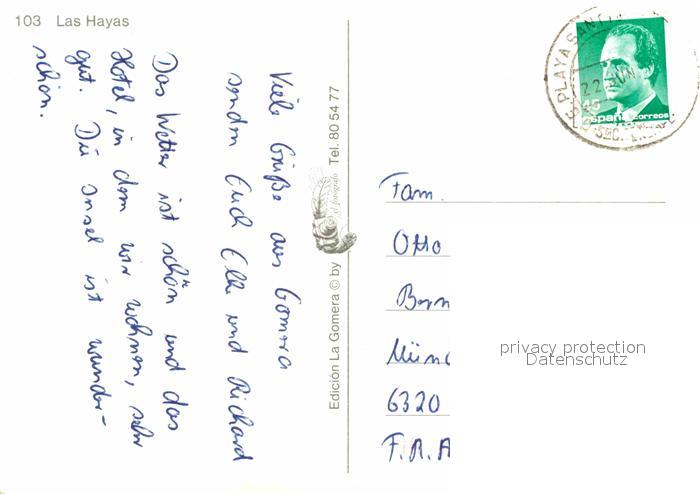 103 Las Hayas
Viele Grüße aus Gomera
senden Euch Elke und Richard
Das Wetter ist schön und das
Hotel, in dem wir wohnen, sehr
gut. Die Insel ist wunder-
schön.
Edición La Gomera © by el fotógrafo Tel. 80 54 77
PLAYA SANT
22 JUN
45
españa correos
Fam.
Otto
Born
Münc
6320
F.R.A
privacy protection
Datenschutz